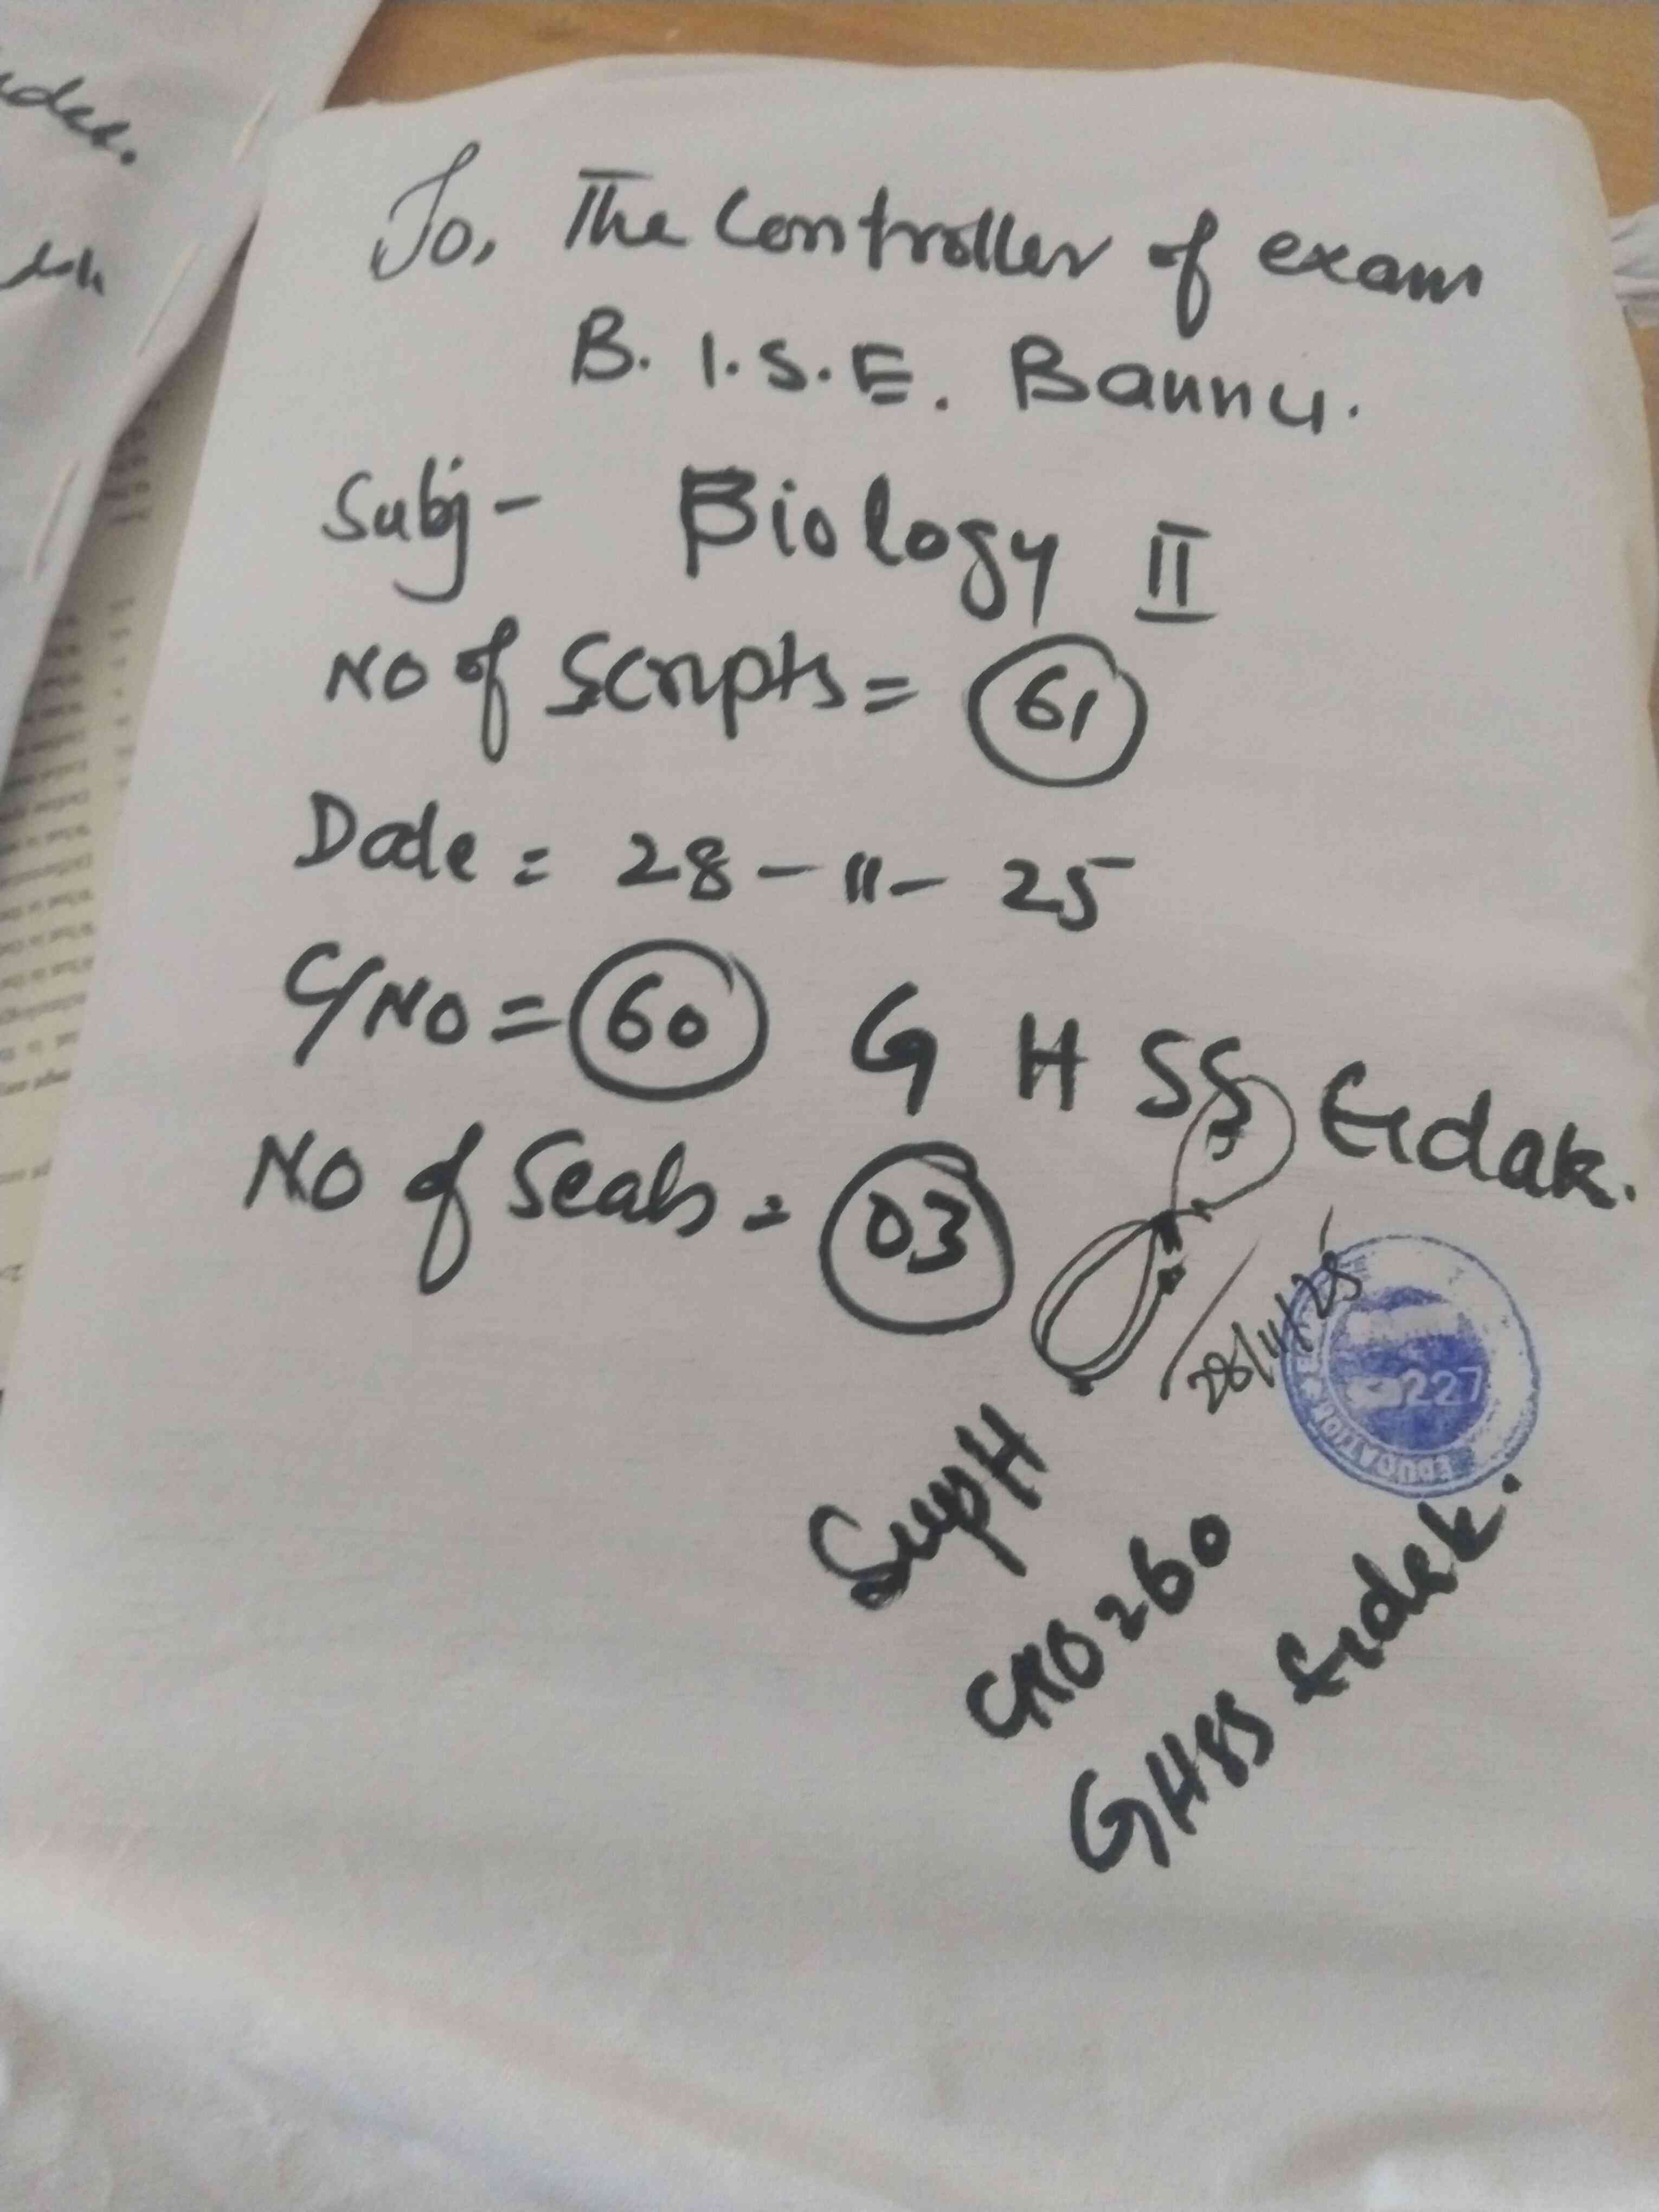 To, The Controller of exam
B. I.S.E. Bannu.
Subj- Biology II
No of Scripts = 61
Date = 28-11-25
C/NO = 60 G H SS Eidak.
No of Seals = 03
28/11/25
227
EDUCATION
Supt
C/NO 260
GHSS Eidak.